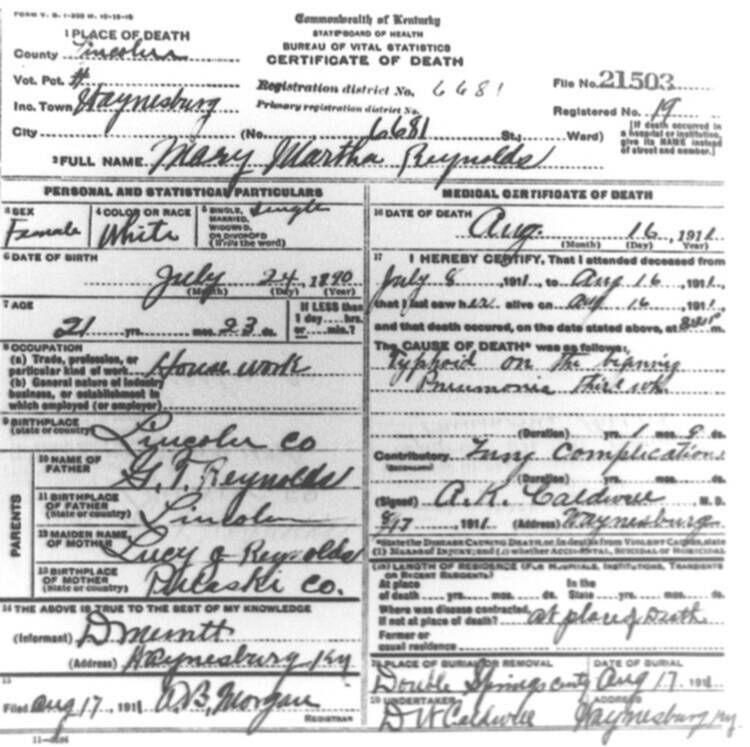 FORM V. S. 1-
Commonwealth of Kentucky
STATE BOARD OF HEALTH
BUREAU OF VITAL STATISTICS
CERTIFICATE OF DEATH
1 PLACE OF DEATH
County Lincoln
Vot. Pct. #
Inc. Town Waynesburg
City (No. 6681 St.; Ward)
Registration district No. 6681
Primary registration district No.
File No. 21503
Registered No. 19
[If death occurred in
a hospital or institution,
give its NAME instead
of street and number.]
2 FULL NAME Mary Martha Reynolds
PERSONAL AND STATISTICAL PARTICULARS
3 SEX
Female
4 COLOR OR RACE
White
5 SINGLE,
MARRIED,
WIDOWED,
OR DIVORCED
(Write the word)
Single
6 DATE OF BIRTH
July 24, 1890
(Month) (Day) (Year)
7 AGE
21 yrs. mos. 23 ds.
If LESS than
1 day... hrs.
or... min.?
8 OCCUPATION
(a) Trade, profession, or
particular kind of work House work
(b) General nature of industry
business, or establishment in
which employed (or employer)
9 BIRTHPLACE
(State or country) Lincoln Co
PARENTS
10 NAME OF
FATHER G. T. Reynolds
11 BIRTHPLACE
OF FATHER
(State or country) Lincoln
12 MAIDEN NAME
OF MOTHER Lucy J Reynolds
13 BIRTHPLACE
OF MOTHER
(State or country) Pulaski Co.
14 THE ABOVE IS TRUE TO THE BEST OF MY KNOWLEDGE
(Informant) D Merritt
(Address) Waynesburg Ky
15
Filed Aug 17, 1911 A.B. Morgan
REGISTRAR
MEDICAL CERTIFICATE OF DEATH
16 DATE OF DEATH
Aug. 16, 1911
(Month) (Day) (Year)
17 I HEREBY CERTIFY, That I attended deceased from
July 8, 1911, to Aug 16, 1911,
that I last saw her alive on Aug 16, 1911,
and that death occured, on the date stated above, at m.
The CAUSE OF DEATH* was as follows:
Typhoid on the
Pneumonia third wk.
(Duration) yrs. 1 mos. 9 ds.
Contributory Lung Complications
(Duration) yrs. mos. ds.
(Signed) A.K. Caldwell M. D.
8/17, 1911 (Address) Waynesburg
*State the DISEASE CAUSING DEATH, or, in deaths from VIOLENT CAUSES, state
(1) MEANS OF INJURY; and (2) whether ACCIDENTAL, SUICIDAL or HOMICIDAL
(18) LENGTH OF RESIDENCE (FOR HOSPITALS, INSTITUTIONS, TRANSIENTS
OR RECENT RESIDENTS)
At place
of death yrs. mos. ds.
In the
State yrs. mos. ds.
Where was disease contracted,
if not at place of death? at place of Death
Former or
usual residence
19 PLACE OF BURIAL OR REMOVAL
Double Springs
DATE OF BURIAL
Aug 17, 1911
20 UNDERTAKER
D W Caldwell
ADDRESS
Waynesburg Ky.